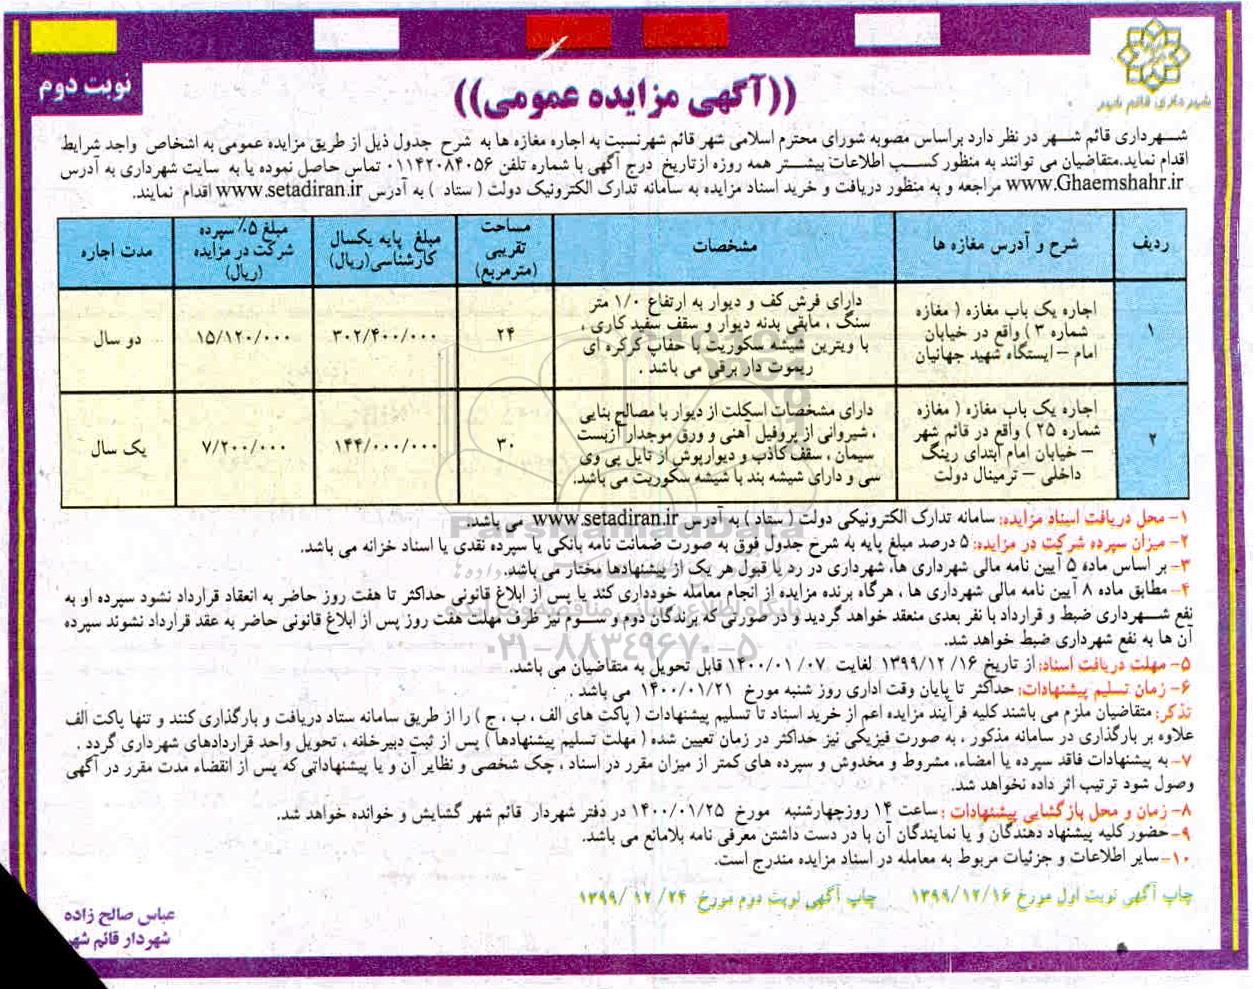 شهرداری قائم شهر
نوبت دوم
((آگهی مزایده عمومی))
شـــهرداری قائم شـــهر در نظر دارد براساس مصوبه شورای محترم اسلامی شهر قائم شهرنسبت به اجاره مغازه ها به شرح جدول ذیل از طریق مزایده عمومی به اشخاص واجد شرایط
اقدام نماید.متقاضیان می توانند به منظور کســـب اطلاعات بیشـــتر همه روزه ازتاریخ درج آگهی با شماره تلفن ۰۱۱۴۲۰۸۴۰۵۶ تماس حاصل نموده یا به سایت شهرداری به آدرس
www.Ghaemshahr.ir مراجعه و به منظور دریافت و خرید اسناد مزایده به سامانه تدارک الکترونیک دولت ( ستاد ) به آدرس www.setadiran.ir اقدام نمایند.
ردیف
شرح و آدرس مغازه ها
مشخصات
مساحت
تقریبی
(مترمربع)
مبلغ پایه یکسال
کارشناسی(ریال)
مبلغ ۵٪ سپرده
شرکت در مزایده
(ریال)
مدت اجاره
۱
اجاره یک باب مغازه ( مغازه
شماره ۳ ) واقع در خیابان
امام – ایستگاه شهید جهانیان
دارای فرش کف و دیوار به ارتفاع ۱/۰ متر
سنگ ، مابقی بدنه دیوار و سقف سفید کاری ،
با ویترین شیشه سکوریت با حفاب کرکره ای
ریموت دار برقی می باشد .
۲۴
۳۰۲/۴۰۰/۰۰۰
۱۵/۱۲۰/۰۰۰
دو سال
۲
اجاره یک باب مغازه ( مغازه
شماره ۲۵ ) واقع در قائم شهر
– خیابان امام ابتدای رینگ
داخلی – ترمینال دولت
دارای مشخصات اسکلت از دیوار با مصالح بنایی
، شیروانی از پروفیل آهنی و ورق موجدار آزبست
سیمان ، سقف کاذب و دیوارپوش از تایل پی وی
سی و دارای شیشه بند با شیشه سکوریت می باشد.
۳۰
۱۴۴/۰۰۰/۰۰۰
۷/۲۰۰/۰۰۰
یک سال
۱- محل دریافت اسناد مزایده: سامانه تدارک الکترونیکی دولت ( ستاد ) به آدرس www.setadiran.ir می باشد.
۲- میزان سپرده شرکت در مزایده: ۵ درصد مبلغ پایه به شرح جدول فوق به صورت ضمانت نامه بانکی یا سپرده نقدی یا اسناد خزانه می باشد.
۳- بر اساس ماده ۵ آیین نامه مالی شهرداری ها، شهرداری در رد یا قبول هر یک از پیشنهادها مختار می باشد.
۴- مطابق ماده ۸ آیین نامه مالی شهرداری ها ، هرگاه برنده مزایده از انجام معامله خودداری کند یا پس از ابلاغ قانونی حداکثر تا هفت روز حاضر به انعقاد قرارداد نشود سپرده او به
نفع شـــهرداری ضبط و قرارداد با نفر بعدی منعقد خواهد گردید و در صورتی که برندگان دوم و ســـوم نیز ظرف مهلت هفت روز پس از ابلاغ قانونی حاضر به عقد قرارداد نشوند سپرده
آن ها به نفع شهرداری ضبط خواهد شد.
۵- مهلت دریافت اسناد: از تاریخ ۱۳۹۹/۱۲/۱۶ لغایت ۱۴۰۰/۰۱/۰۷ قابل تحویل به متقاضیان می باشد.
۶- زمان تسلیم پیشنهادات: حداکثر تا پایان وقت اداری روز شنبه مورخ ۱۴۰۰/۰۱/۲۱ می باشد .
تذکر: متقاضیان ملزم می باشند کلیه فرآیند مزایده اعم از خرید اسناد تا تسلیم پیشنهادات ( پاکت های الف ، ب ، ج ) را از طریق سامانه ستاد دریافت و بارگذاری کنند و تنها پاکت الف
علاوه بر بارگذاری در سامانه مذکور ، به صورت فیزیکی نیز حداکثر در زمان تعیین شده ( مهلت تسلیم پیشنهادها ) پس از ثبت دبیرخانه ، تحویل واحد قراردادهای شهرداری گردد .
۷- به پیشنهادات فاقد سپرده یا امضاء، مشروط و مخدوش و سپرده های کمتر از میزان مقرر در اسناد ، چک شخصی و نظایر آن و یا پیشنهاداتی که پس از انقضاء مدت مقرر در آگهی
وصول شود ترتیب اثر داده نخواهد شد.
۸- زمان و محل بازگشایی پیشنهادات : ساعت ۱۴ روزچهارشنبه مورخ ۱۴۰۰/۰۱/۲۵ در دفتر شهردار قائم شهر گشایش و خوانده خواهد شد.
۹- حضور کلیه پیشنهاد دهندگان و یا نمایندگان آن با در دست داشتن معرفی نامه بلامانع می باشد.
۱۰- سایر اطلاعات و جزئیات مربوط به معامله در اسناد مزایده مندرج است.
چاپ آگهی نوبت اول مورخ ۱۳۹۹/۱۲/۱۶ چاپ آگهی نوبت دوم مورخ ۱۳۹۹/۱۲/۲۴
عباس صالح زاده
شهردار قائم شهر
ParsNamadData
پایگاه اطلاع رسانی مناقصه و مزایده
۰۲۱-۸۸۳۴۹۶۷۰-۵